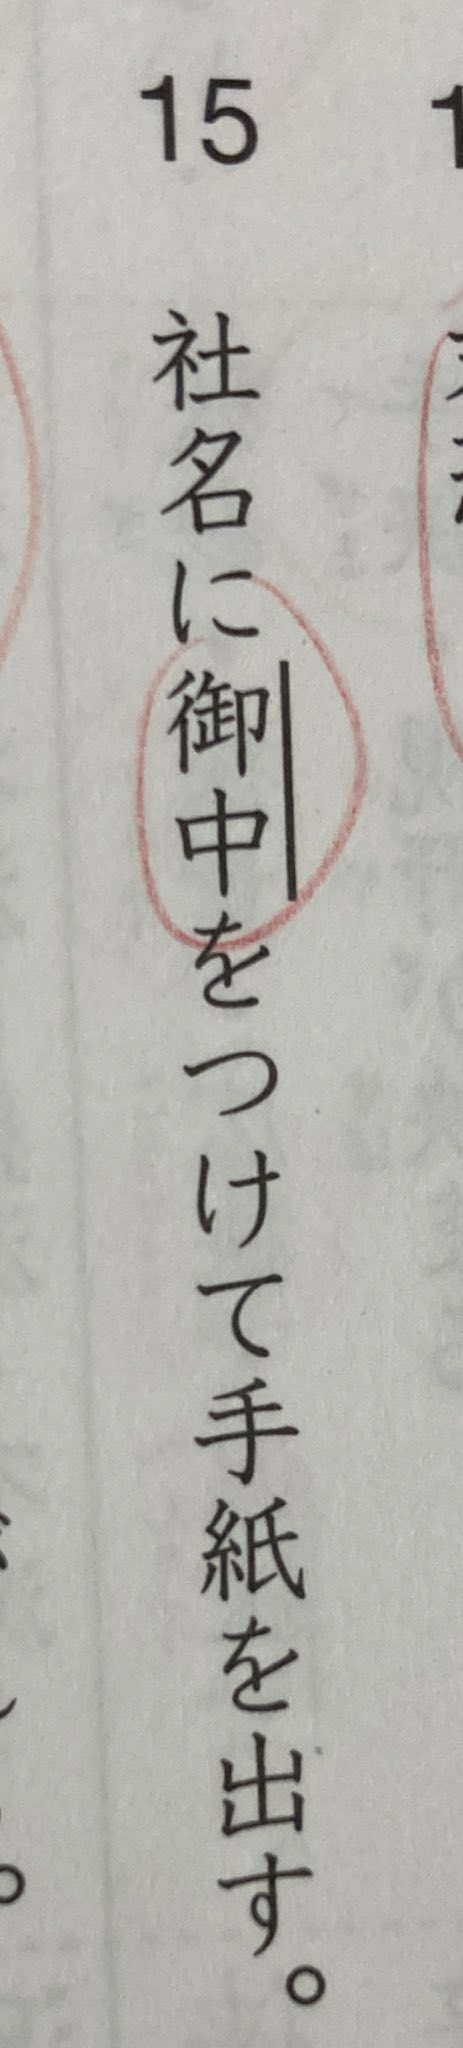 15
社名に御中をつけて手紙を出す。